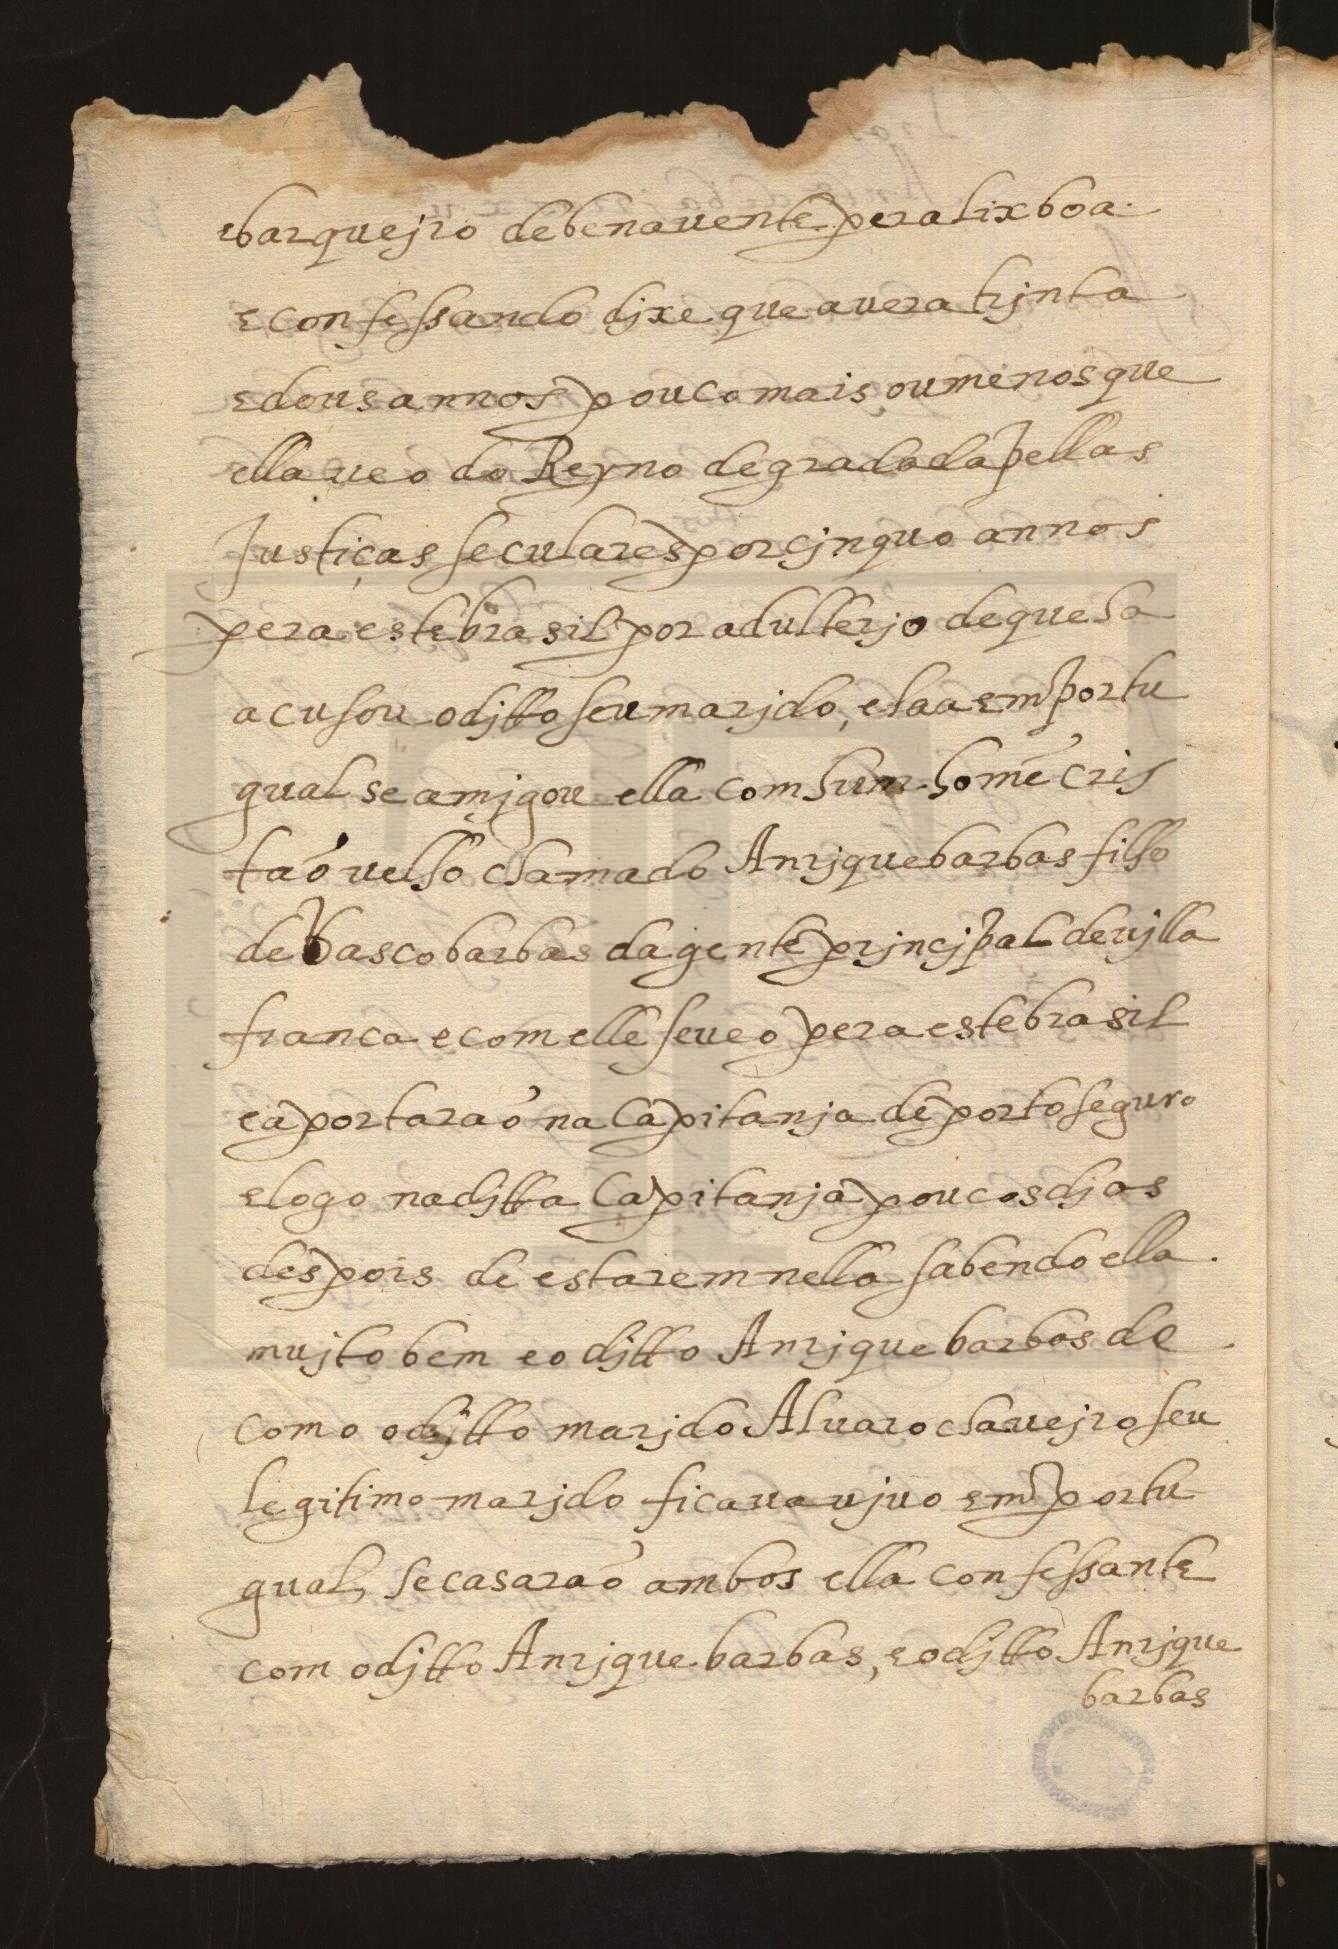 barquejro de benavente pera lixboa.
e confessando dixe que avera trjnta
e dous annos pouco mais ou menos que
ella veo do Reyno degradada pellas
Justiças seculares por cjnquo annos
pera este brasil por adulterjo de que ha
acusou o djtto seu marjdo, e laa em portu
gual se amjgou ella com hum homẽ cris
taõ velho chamado Anrjque barbas filho
de Vasco barbas da gente prjncjpal de vjlla
franca e com elle se veo pera este brasil
e aportaraõ na Capitanja de porto seguro
e logo na djtta Capitanja poucos djas
despois de estarem nella sabendo ella
mujto bem e o djtto Anrjque barbas de
como o djtto marjdo Alvaro chavejro seu
legitimo marjdo ficava vjvo em portu
gual, se casaraõ ambos ella confessante
com o djtto Anrjque barbas, e o djtto Anrjque
barbas